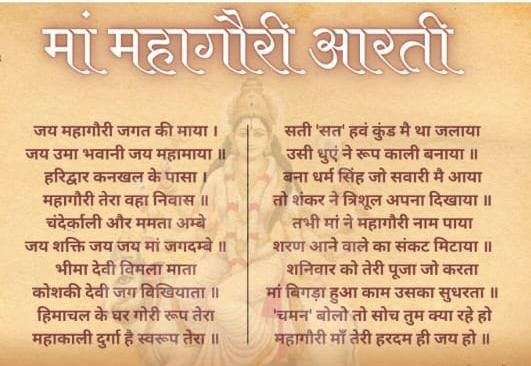 मां महागौरी आरती
जय महागौरी जगत की माया ।
जय उमा भवानी जय महामाया ॥
हरिद्वार कनखल के पासा ।
महागौरी तेरा वहा निवास ॥
चंदेर्काली और ममता अम्बे
जय शक्ति जय जय मां जगदम्बे ॥
भीमा देवी विमला माता
कोशकी देवी जग विखियाता ॥
हिमाचल के घर गोरी रूप तेरा
महाकाली दुर्गा है स्वरूप तेरा ॥
सती 'सत' हवं कुंड मै था जलाया
उसी धुएं ने रूप काली बनाया ॥
बना धर्म सिंह जो सवारी मै आया
तो शंकर ने त्रिशूल अपना दिखाया ॥
तभी मां ने महागौरी नाम पाया
शरण आने वाले का संकट मिटाया ॥
शनिवार को तेरी पूजा जो करता
मां बिगड़ा हुआ काम उसका सुधरता ॥
'चमन' बोलो तो सोच तुम क्या रहे हो
महागौरी माँ तेरी हरदम ही जय हो ॥